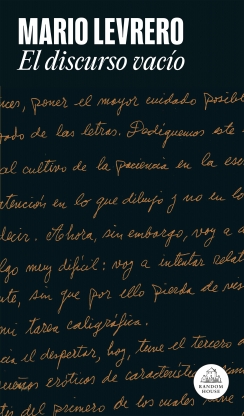 MARIO LEVRERO
El discurso vacío
nces, poner el mayor cuidado posible
pado de las letras. Dediquemos este
al cultivo de la paciencia en la esc
atención en lo que dibujo y no en lo
decir. Ahora, sin embargo, voy a a
lgo muy difícil: voy a intentar relat
te, sin que por ello pierda de vers
mi tarea caligráfica.
cia el despertar, hoy, tuve el tercero a
sueños eróticos de característi
te, el primero de los cuales
RANDOM
HOUSE